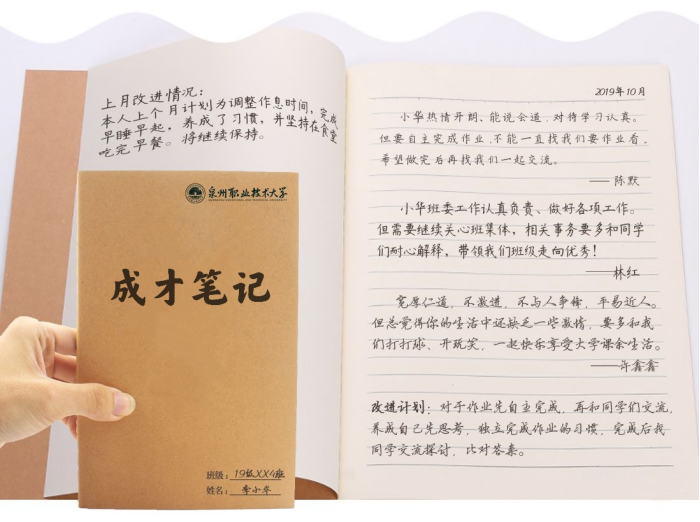 上月改进情况：
本人上个月计划为调整作息时间，完成
早睡早起，养成了习惯，并坚持在食堂
吃完早餐。将继续保持。
泉州职业技术大学
成才笔记
班级：19级XX4班
姓名：李小华
2019年10月
小华热情开朗、能说会道，对待学习认真。
但要自主完成作业，不能一直找我们要作业看，
希望做完后再找我们一起交流。
——陈默
小华班委工作认真负责、做好各项工作。
但需要继续关心班集体，相关事务要多和同学
们耐心解释，带领我们班级走向优秀！
——林红
宽厚仁道，不激进，不与人争锋，平易近人。
但总觉得你的生活中还缺乏一些激情，要多和我
们打打球、开玩笑，一起快乐享受大学课余生活。
——许鑫鑫
改进计划：对于作业先自主完成，再和同学们交流，
养成自己先思考，独立完成作业的习惯，完成后找
同学交流探讨，比对答案。